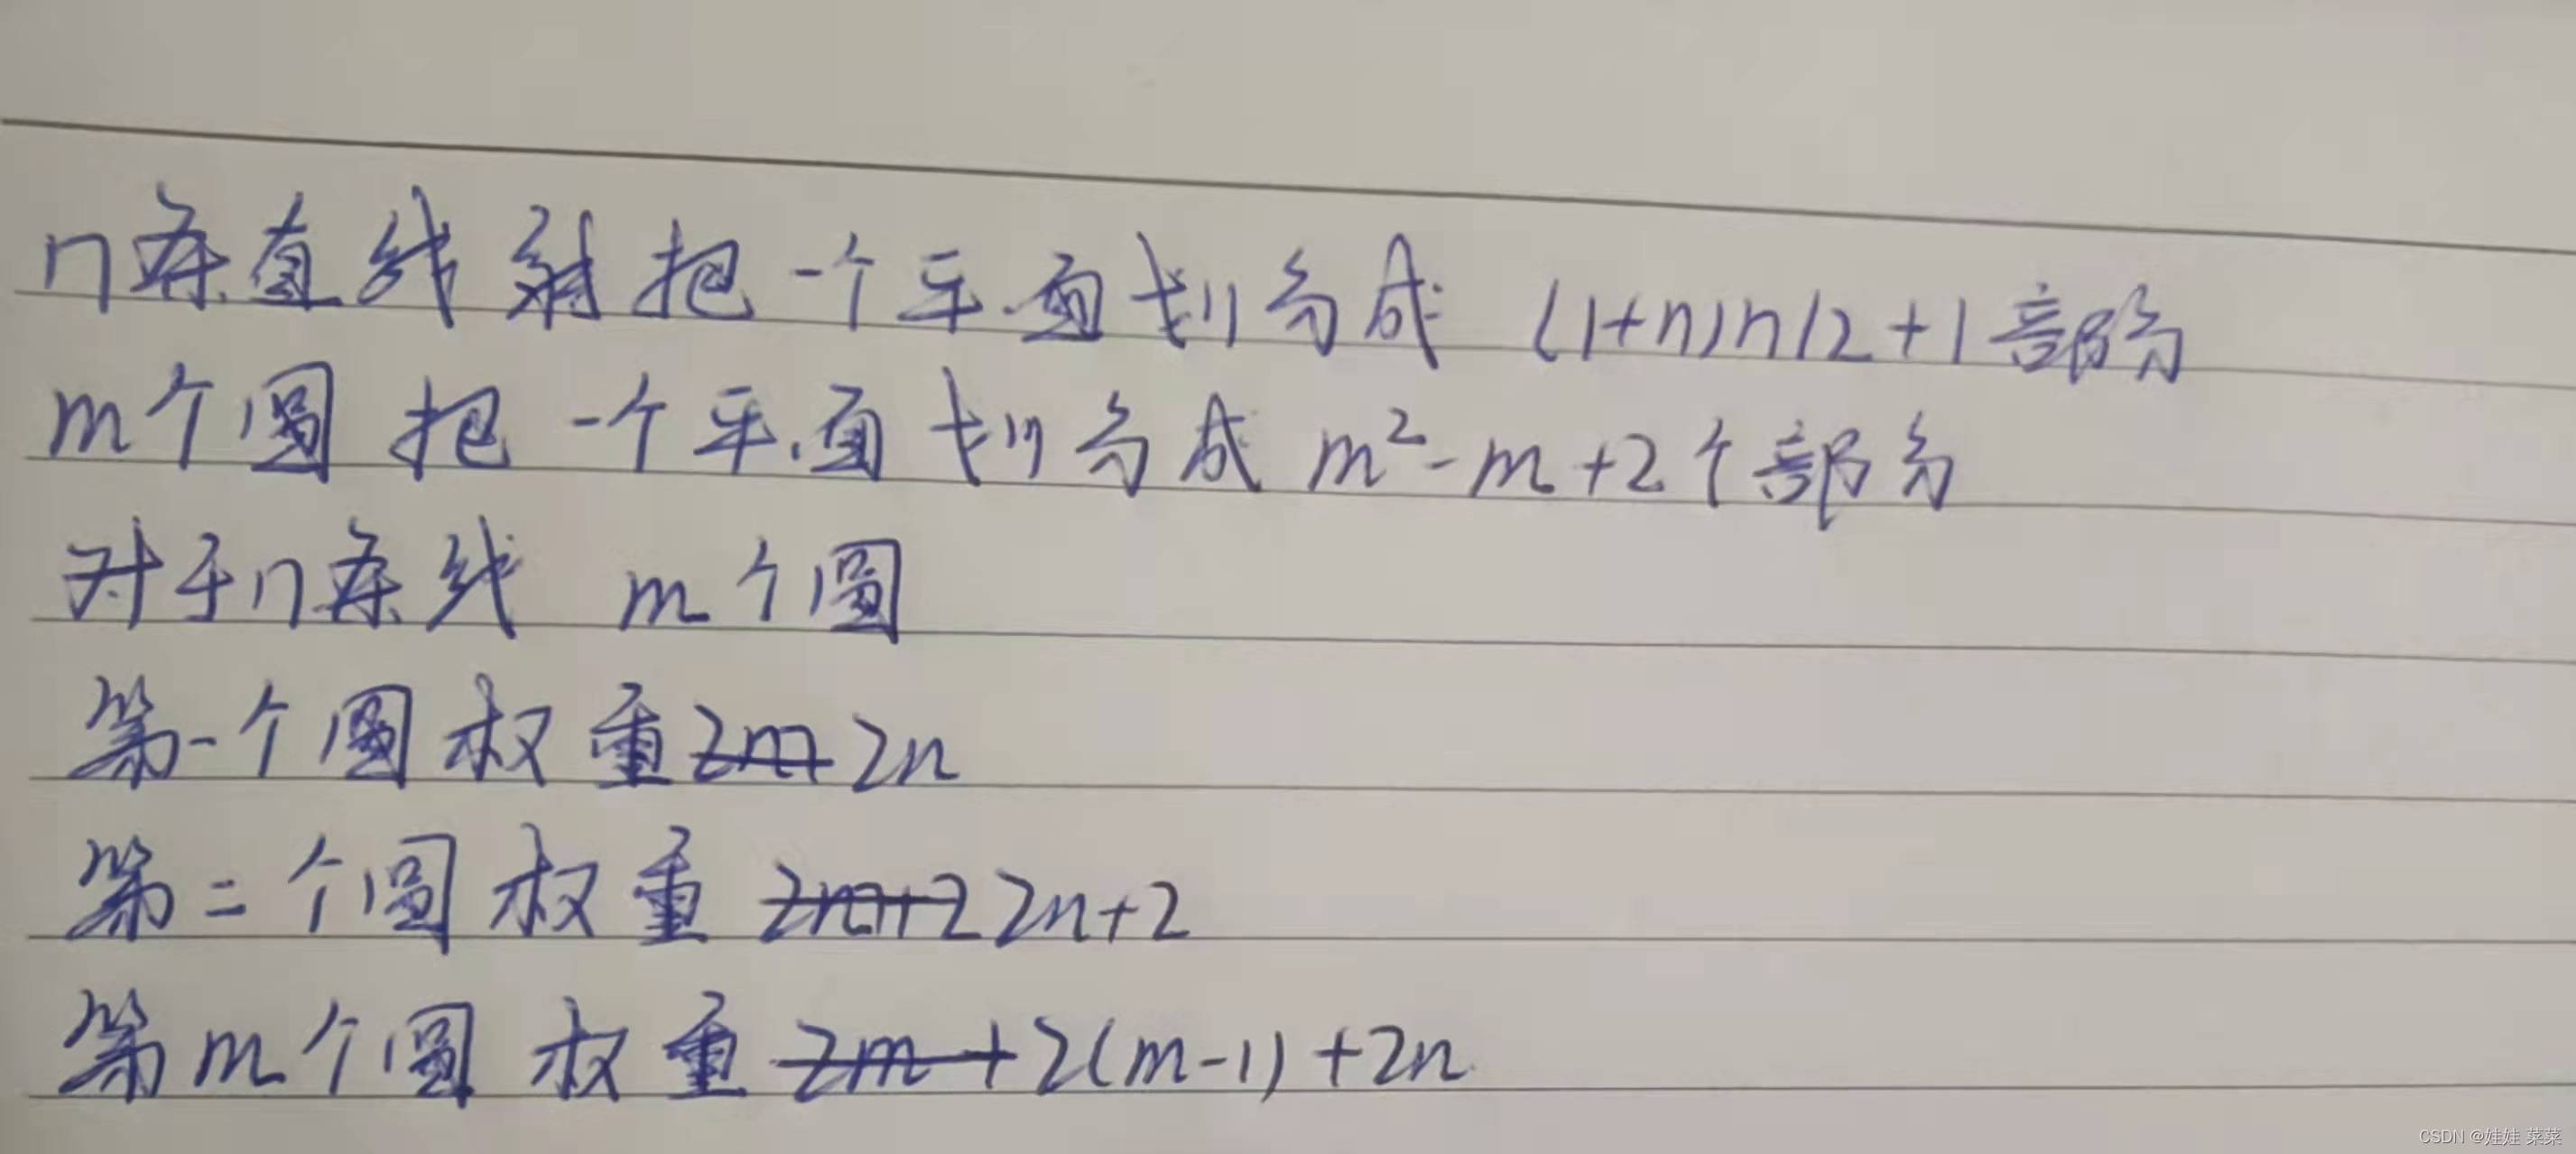 n条直线把一个平面划分成 (1+n)n/2+1部分
m个圆 把一个平面划分成 m²-m+2个部分
对于n条线 m个圆
第一个圆权重2m 2n
第二个圆权重 2m+2 2n+2
第m个圆 权重 2m+2(m-1)+2n
CSDN @娃娃 菜菜